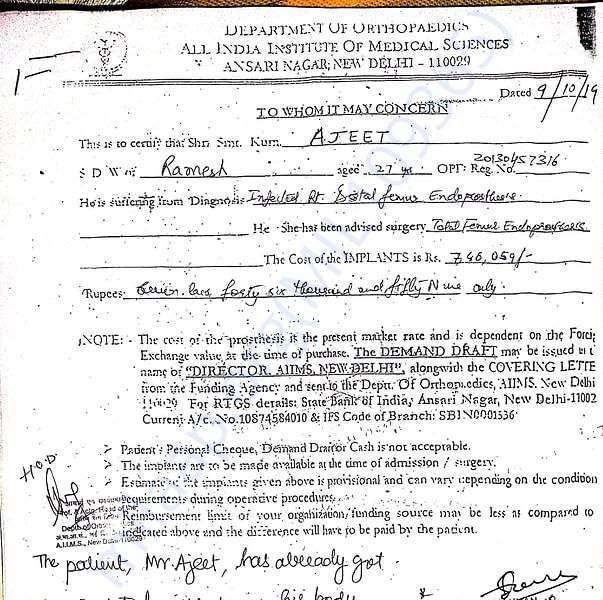 DEPARTMENT OF ORTHOPAEDICS
ALL INDIA INSTITUTE OF MEDICAL SCIENCES
ANSARI NAGAR, NEW DELHI - 110029
Dated 9/10/19
TO WHOM IT MAY CONCERN
This is to certify that Shri Smt. Kum. AJEET
S D W of Ramesh aged 27 yrs OPD Reg. No. 20130457316
He is suffering from Diagnosis Infected Rt. Distal femur Endoprosthesis.
He She has been advised surgery Total Femur Endoprosthesis
The Cost of the IMPLANTS is Rs. 7,46,059/-
Rupees Seven lacs forty six thousand and fifty Nine only.
NOTE: - The cost of the prosthesis is the present market rate and is dependent on the Forei
Exchange value at the time of purchase. The DEMAND DRAFT may be issued in t
name of "DIRECTOR, AIIMS, NEW DELHI", alongwith the COVERING LETTE
from the Funding Agency and sent to the Deptt. Of Orthopaedics, AIIMS, New Delhi
110029 For RTGS details: State Bank of India, Ansari Nagar, New Delhi-11002
Current A/c. No.10874584010 & IFS Code of Branch: SBIN0001536
➢ Patient's Personal Cheque, Demand Draft or Cash is not acceptable.
➢ The implants are to be made available at the time of admission / surgery.
➢ Estimate of the implants given above is provisional and can vary depending on the condition
requirements during operative procedures.
Reimbursement limit of your organization/funding source may be less as compared to
indicated above and the difference will have to be paid by the patient.
H.O.D
Head of the
A.I.I.M.S., New Delhi-110029
The patient, Mr Ajeet, has already got